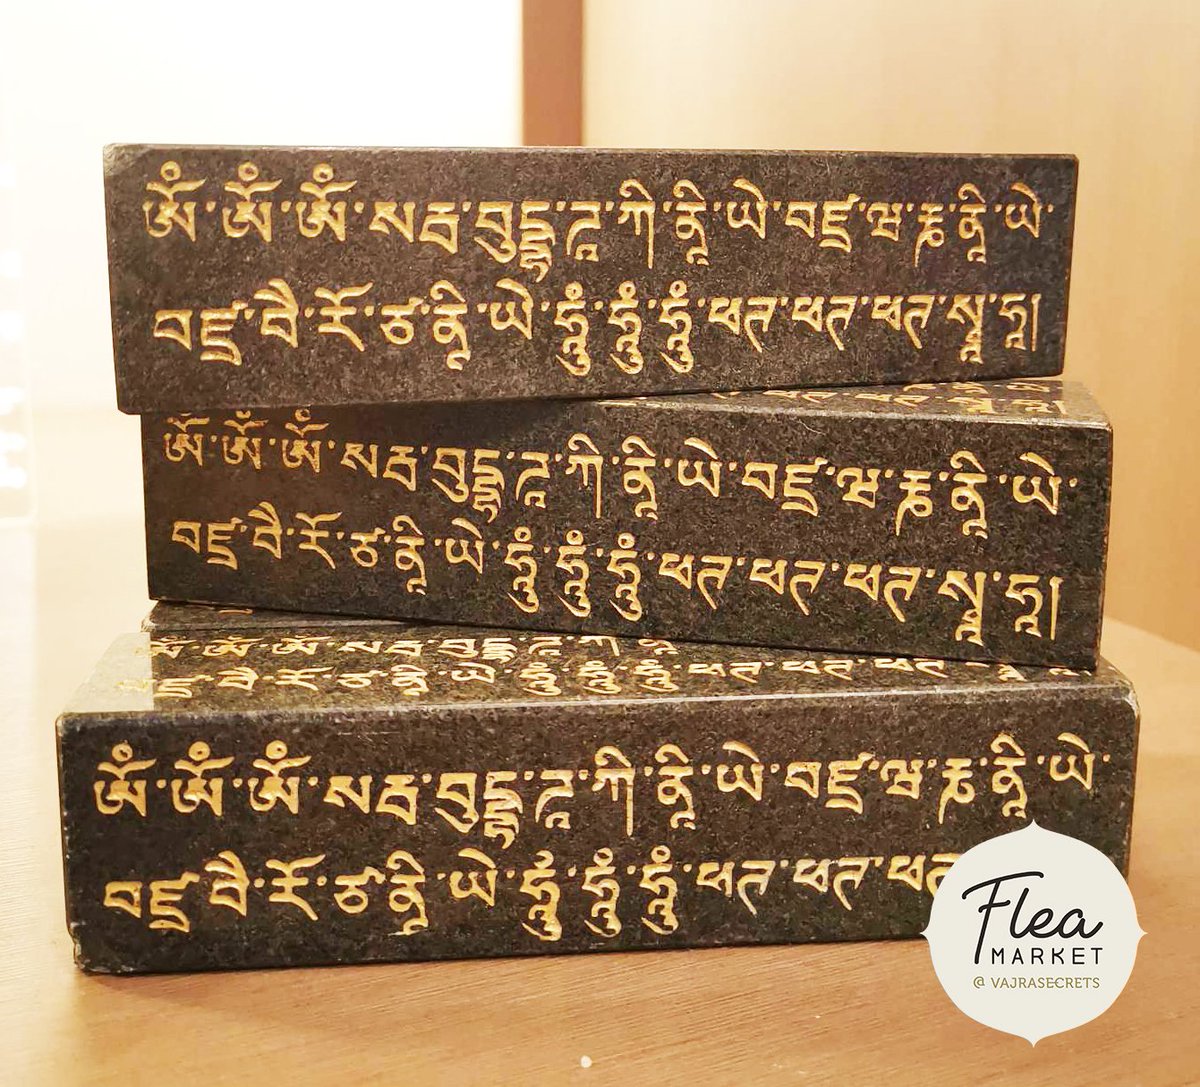 ཨོཾ་ཨོཾ་ཨོཾ་སརྦ་བུདྡྷ་ཌཱ་ཀི་ནཱི་ཡེ་བཛྲ་ཝ་རྞ་ནཱི་ཡེ་
བཛྲ་བཻ་རོ་ཙ་ནཱི་ཡེ་ཧཱུཾ་ཧཱུཾ་ཧཱུཾ་ཕཊ་ཕཊ་ཕཊ་སྭཱ་ཧཱ།
ཨོཾ་ཨོཾ་ཨོཾ་སརྦ་བུདྡྷ་ཌཱ་ཀི་ནཱི་ཡེ་བཛྲ་ཝ་རྞ་ནཱི་ཡེ་
བཛྲ་བཻ་རོ་ཙ་ནཱི་ཡེ་ཧཱུཾ་ཧཱུཾ་ཧཱུཾ་ཕཊ་ཕཊ་ཕཊ་སྭཱ་ཧཱ།
ཨོཾ་ཨོཾ་ཨོཾ་སརྦ་བུདྡྷ་ཌཱ་ཀི་ནཱི་ཡེ་བཛྲ་ཝ་རྞ་ནཱི་ཡེ་
བཛྲ་བཻ་རོ་ཙ་ནཱི་ཡེ་ཧཱུཾ་ཧཱུཾ་ཧཱུཾ་ཕཊ་ཕཊ་ཕཊ
Flea
MARKET
@ VAJRASECRETS